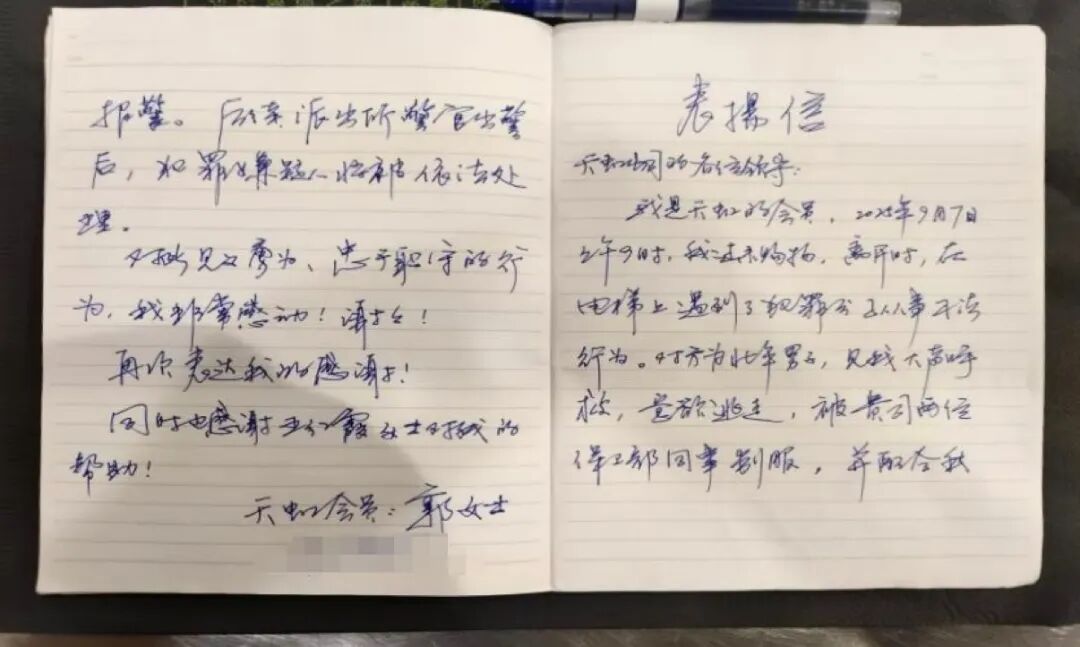 表扬信
天虹公司的各位领导：
我是天虹的会员，2025年9月7日
上午9时，我进来购物，离开时，在
电梯上遇到了犯罪分子从事不法
行为。对方为壮年男子，见我大声呼
救，意欲逃走，被贵司两位
保卫部同事制服，并配合我
报警。后派出所警官出警
后，犯罪嫌疑人将被依法处
理。
对此见义勇为、忠于职守的行
为，我非常感动！谢谢！
再次表达我的感谢！
同时也感谢霞女士对我的
帮助！
天虹会员：郭女士